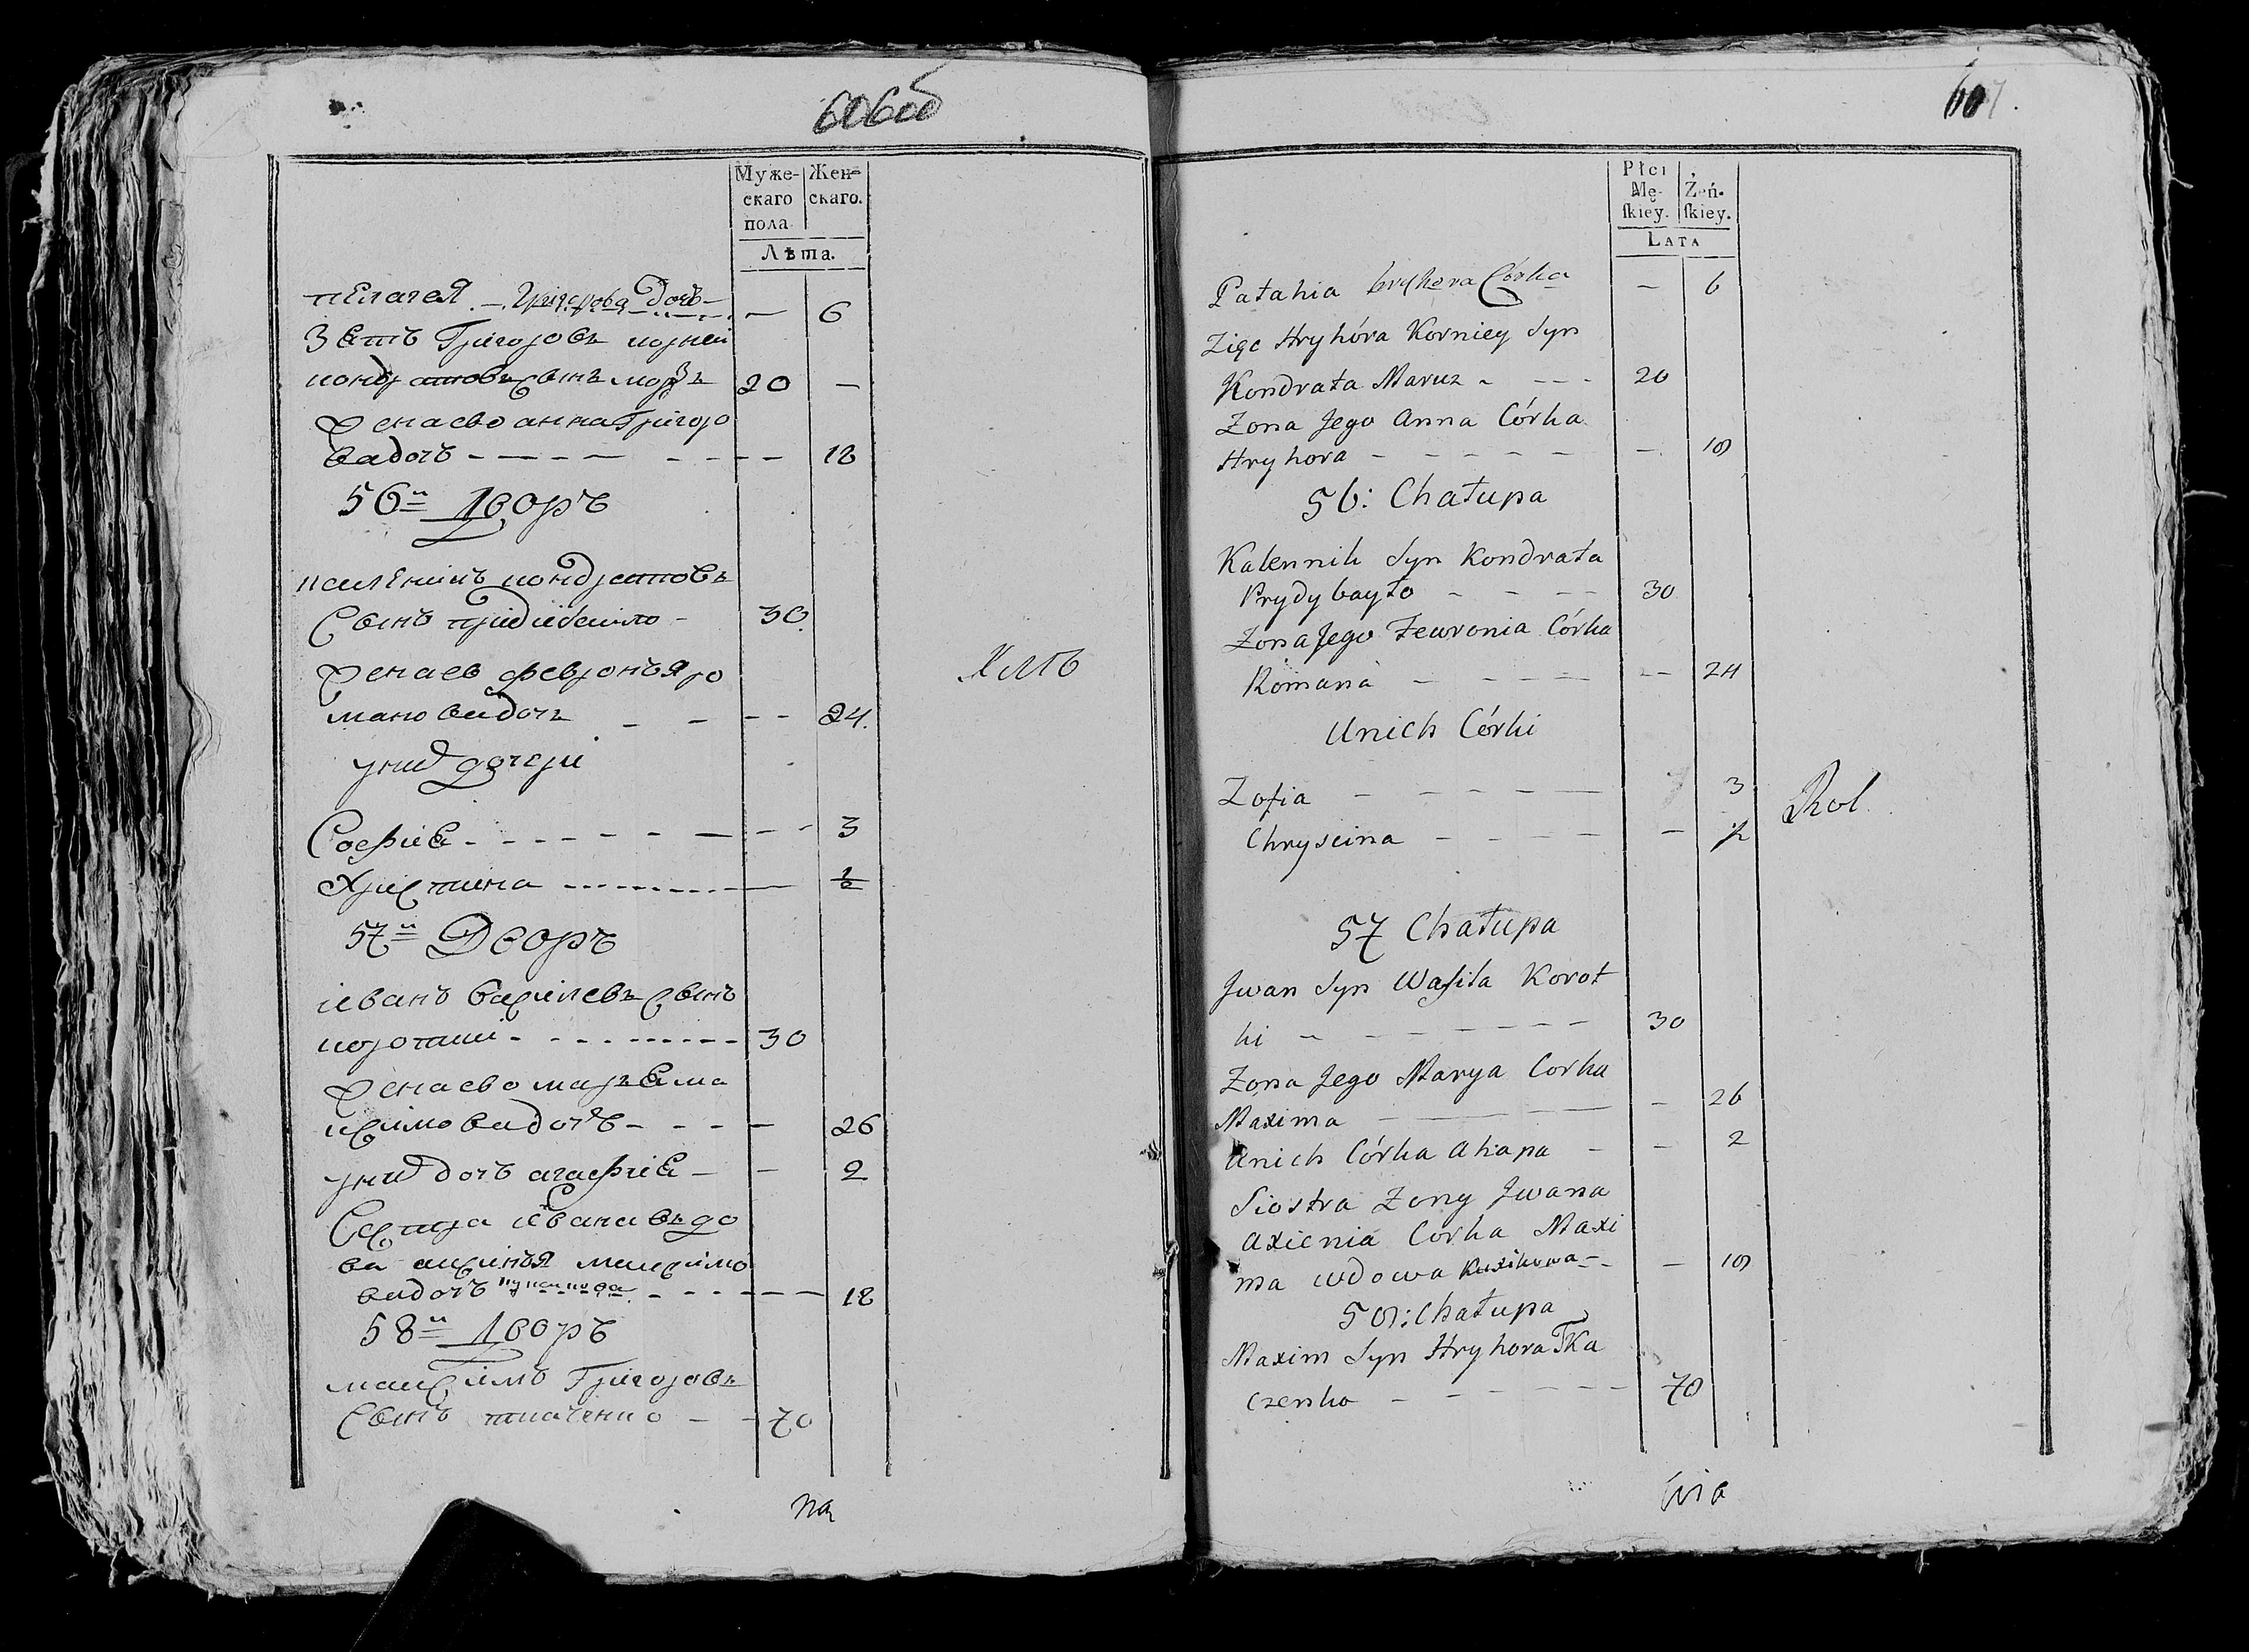 606об
Муже-
скаго
пола
Жен=
скаго.
Лѣта.
пелагея — Григорова Дочь — — 6
Зеть Григоровъ корней
кондратовъ сынъ морзъ 20 —
Жена ево анна Григоро
ва дочь — — — — — — — — 18
56й Дворъ
каленикъ кондратовъ
Сынъ придибайло - 30.
Жена ево февронья ро
манова дочь — — — — 24.
у них дочери
София - - - - - - — - - 3
Христина - - - - - - - — 1/2
57й Дворъ
иванъ василевъ сынъ
короткий - - - - - - - - 30
Жена ево маря ма
ксимова дочь - - - — 26
у них дочь агафия — — 2
Сестра ивана вдо
ва аксинья максимо
ва дочь - - - - — — 18
58й Дворъ
максимъ Григоровъ
Сынъ ткаченко — - 70
на
607.
Płci
Mę-
skiey.
Żeń-
skiey.
LATA
Pałahia Hryhora Córka — 6
Zięc Hryhóra Korniey Syn
Kondrata Maruz - - - - 20
Zona Jego Anna Córka
Hryhora - - - - - - — 18
56: Chałupa
Kalennik Syn Kondrata
Prydybayło - - - - 30
Zona Jego Fewronia Córka
Romana — - - - — -- 24
Unich Córki
Zofia — - - - - — 3
Chryscina — - - - - — 1/2
Rol.
57 Chałupa
Jwan Syn Wasila Korot
ki - - - - - - - - 30
Zona Jego Marya Corka
Maxima — — — - 26
Unich Córka Ahapa - - 2
Siostra Zony Jwana
Axienia Corka Maxi
ma wdowa - - — 18
58: Chałupa
Maxim Syn Hryhora Tka
czenko - - - - - - - 70